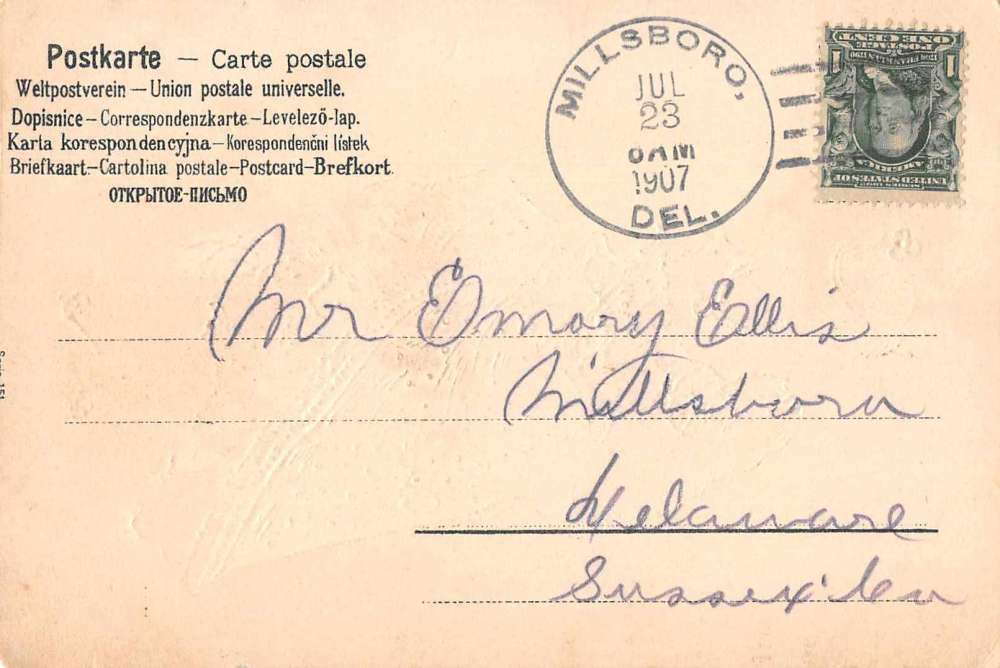 Postkarte – Carte postale
Weltpostverein – Union postale universelle.
Dopisnice – Correspondenzkarte – Levelező-lap.
Karta korespondencyjna – Korespondenční lístek
Briefkaart – Cartolina postale – Postcard – Brefkort.
ОТКРЫТОЕ-ПИСЬМО
MILLSBORO,
JUL
23
8AM
1907
DEL.
SERIES 1902
UNITED STATES OF
AMERICA
1 1
POSTAGE
ONE CENT
Mr Emory Ellis
Millsboro
Delaware
Sussex Co
Serie 151